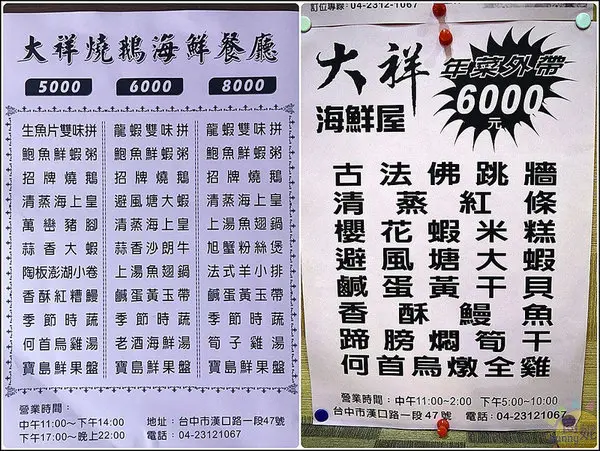 大祥燒鵝海鮮餐廳
5000 6000 8000
生魚片雙味拼 龍蝦雙味拼 龍蝦雙味拼
鮑魚鮮蝦粥 鮑魚鮮蝦粥 鮑魚鮮蝦粥
招牌燒鵝 招牌燒鵝 招牌燒鵝
清蒸海上皇 避風塘大蝦 清蒸海上皇
萬巒豬腳 清蒸海上皇 上湯魚翅鍋
蒜香大蝦 蒜香沙朗牛 旭蟹粉絲煲
陶板澎湖小卷 上湯魚翅鍋 法式羊小排
香酥紅糟鰻 鹹蛋黃玉帶 鹹蛋黃玉帶
季節時蔬 季節時蔬 季節時蔬
何首烏雞湯 老酒海鮮湯 筍子雞湯
寶島鮮果盤 寶島鮮果盤 寶島鮮果盤
營業時間：
中午11:00～下午14:00 地址：台中市漢口路一段47號
下午17:00～晚上22:00 電話：04-23121067
訂位專線：04-2312-1067
大祥
海鮮屋
年菜外帶
6000
元
古法佛跳牆
清蒸紅條
櫻花蝦米糕
避風塘大蝦
鹹蛋黃干貝
香酥鰻魚
蹄膀燜筍干
何首烏燉全雞
營業時間：中午11:00~2:00 下午5:00~10:00
台中市漢口路一段47號 電話：04-23121067